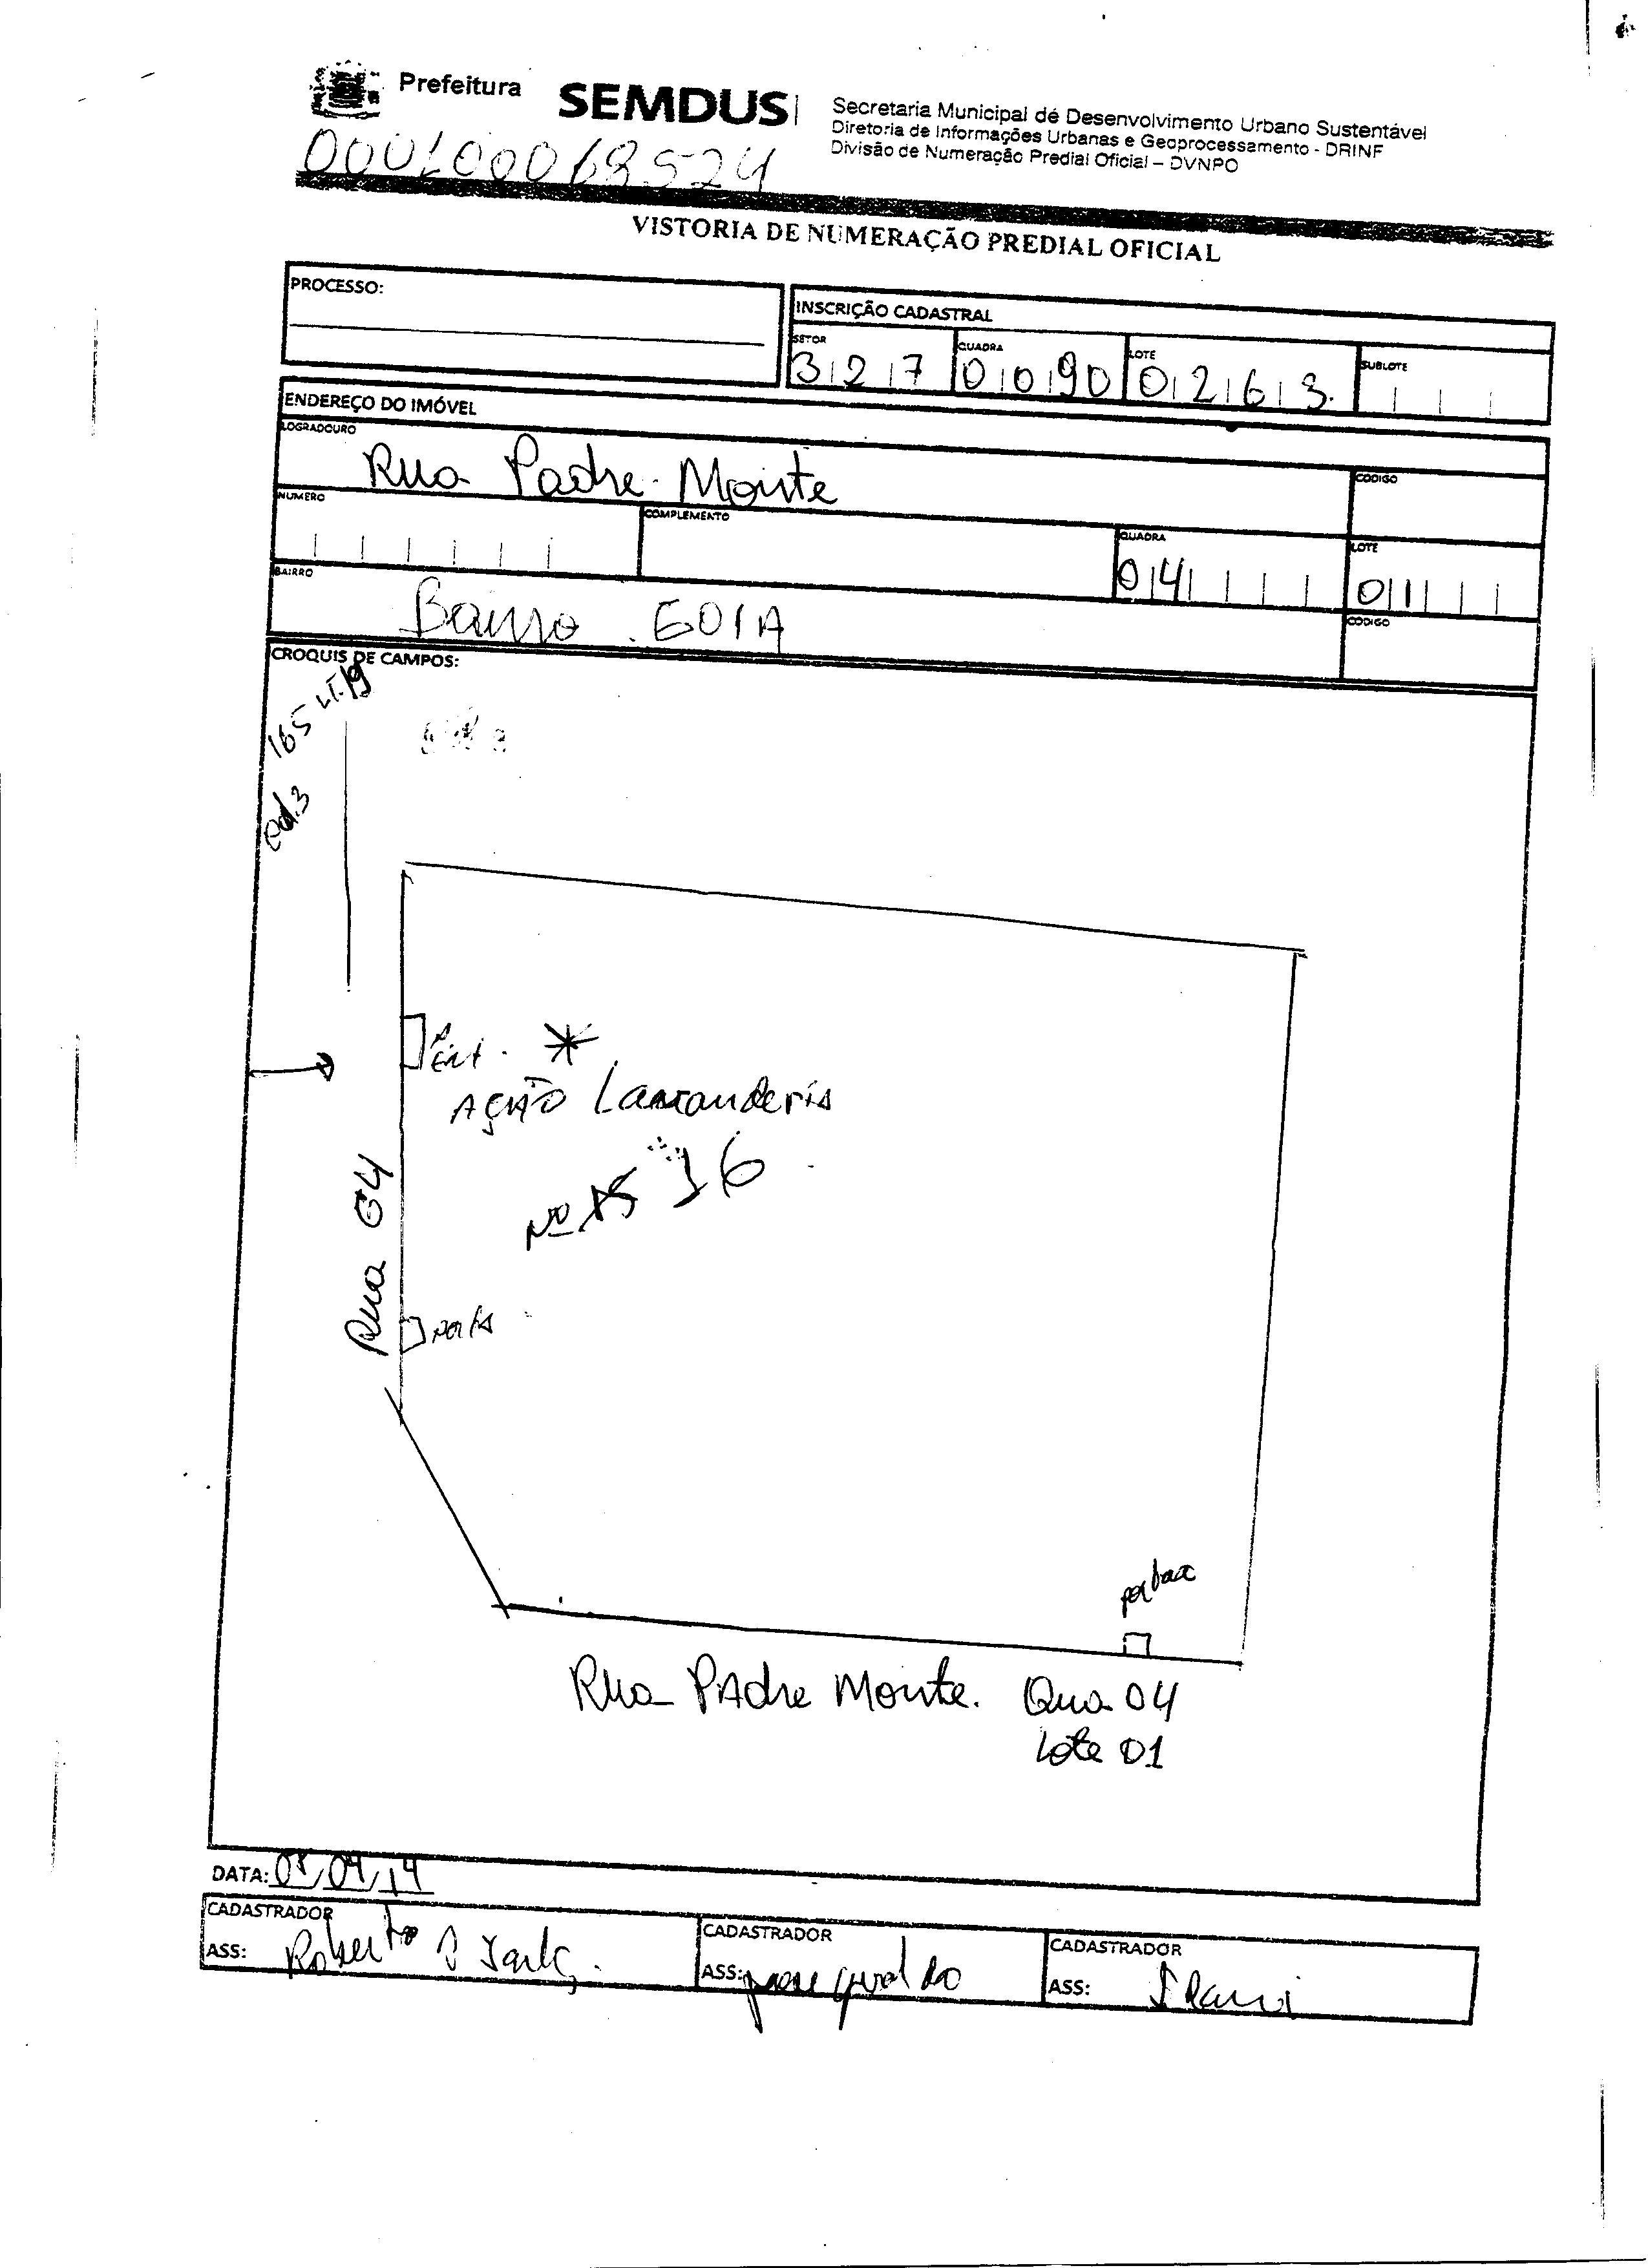 Prefeitura
SEMDUS
Secretaria Municipal dé Desenvolvimento Urbano Sustentável
Diretoria de Informações Urbanas e Geoprocessamento - DRINF
Divisão de Numeração Predial Oficial – DVNPO
VISTORIA DE NUMERAÇÃO PREDIAL OFICIAL
PROCESSO:
INSCRIÇÃO CADASTRAL
SETOR QUADRA LOTE SUBLOTE
327 0090 0263
ENDEREÇO DO IMÓVEL
LOGRADOURO
Rua Padre Monte
CODIGO
NUMERO COMPLEMENTO QUADRA LOTE
04 01
BAIRRO
Bairro GOIA
CODIGO
CROQUIS DE CAMPOS:
165 LT.19
Qd.3
Ent.
AÇÃO Lavanderia
Nº 15 16
Rua 04
porta
Rua PAdre Monte. Qua 04
Lote 01
DATA: 08/04/14
CADASTRADOR
ASS: Roberto
CADASTRADOR
ASS:
CADASTRADOR
ASS: